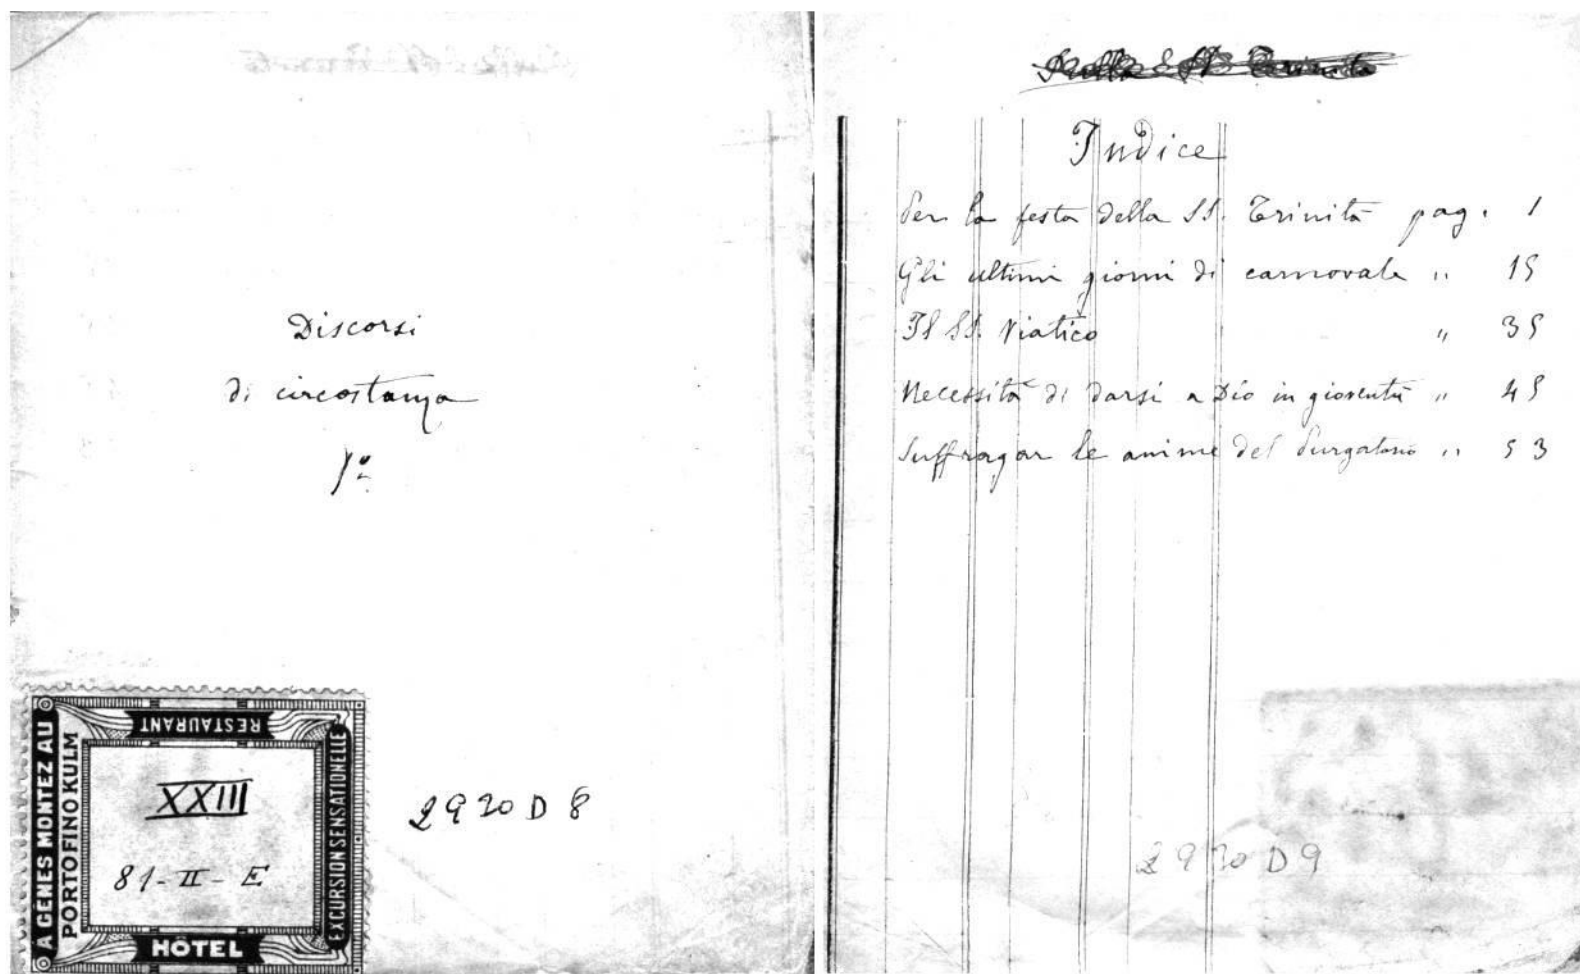 Discorsi
di circostanza
1º
A GENES MONTEZ AU
PORTOFINO KULM
RESTAURANT
EXCURSION SENSATIONELLE
HÔTEL
XXIII
81-II-E
2920 D 8
Sulla SS. Trinità
Indice
Per la festa della SS. Trinità pag. 1
Gli ultimi giorni di carnovale " 15
Il SS. Viatico " 35
Necessità di darsi a Dio in gioventù " 45
Suffragar le anime del Purgatorio " 53
2920 D 9